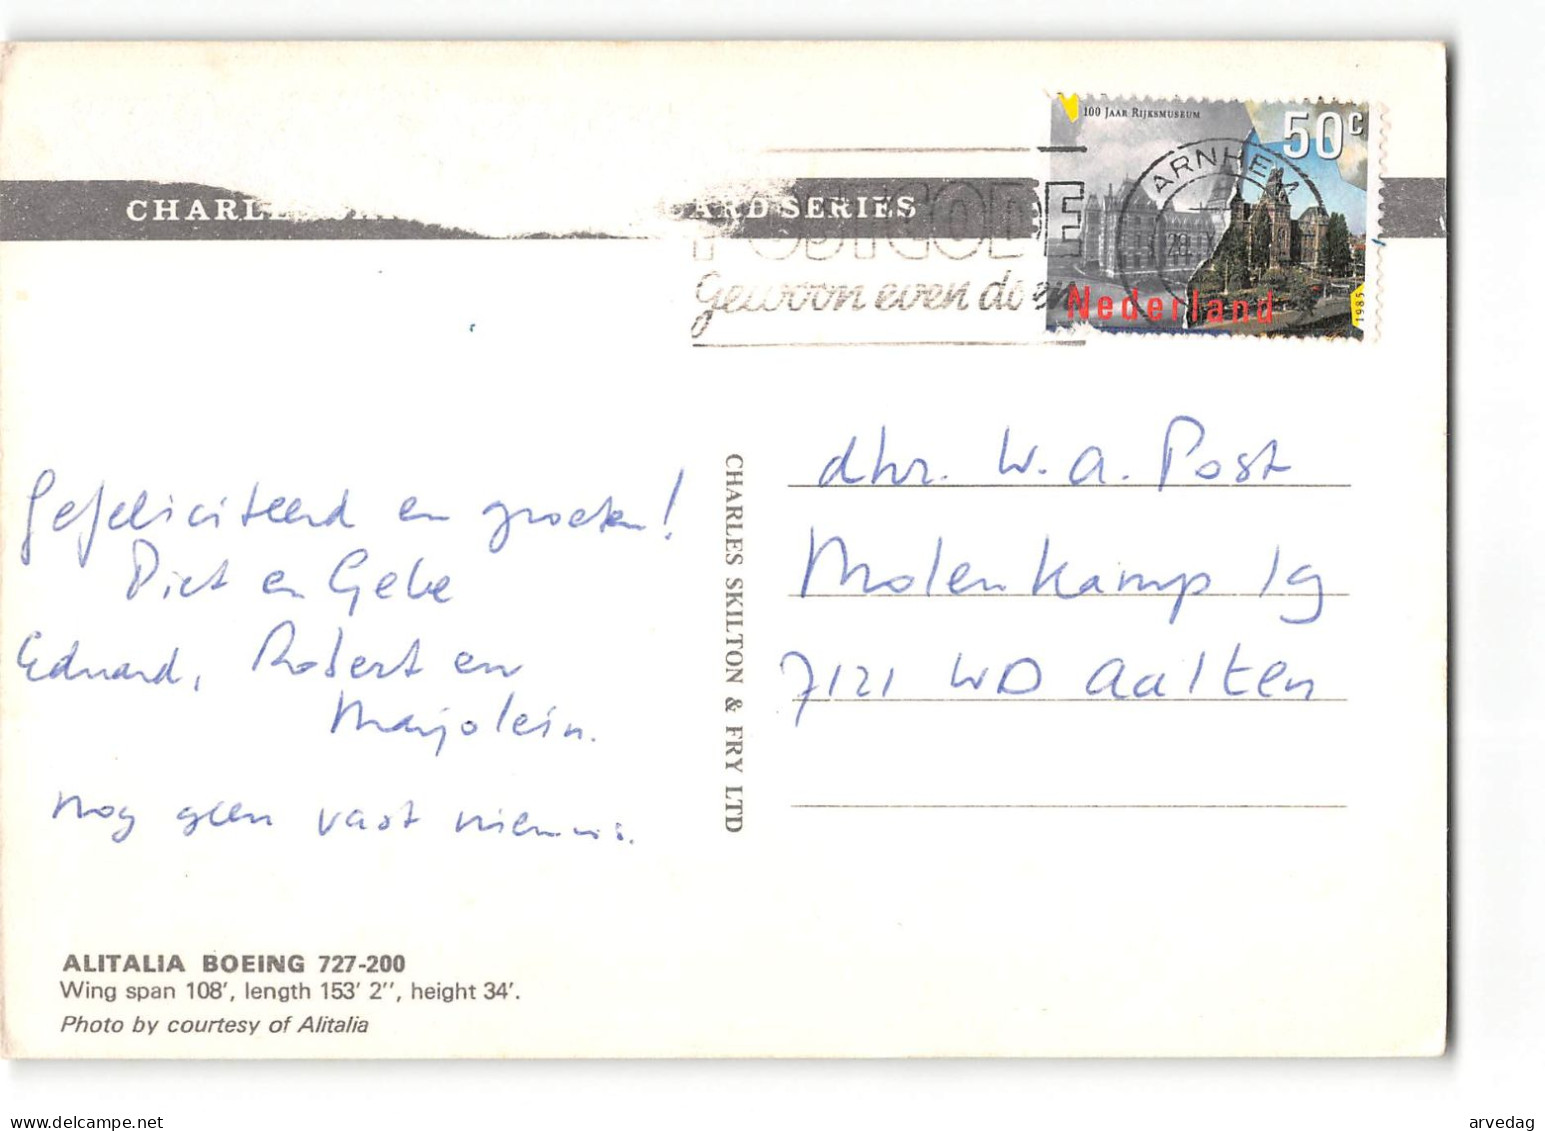 CHARLES
CARD SERIES
100 JAAR RIJKSMUSEUM
50c
ARNHEM
28
POSTCODE
Gewoon even doen
Nederland
1985
Gefeliciteerd en groeten!
Piet en Gebe
Eduard, Robert en
Marjolein.
nog geen vast nieuws.
CHARLES SKILTON & FRY LTD
dhr. W. A. Post
Molenkamp 19
7121 WD Aalten
ALITALIA BOEING 727-200
Wing span 108', length 153' 2'', height 34'.
Photo by courtesy of Alitalia
arvedag